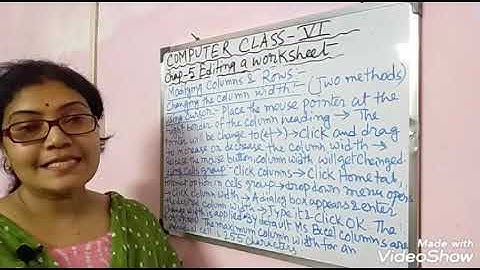 COMPUTER CLASS-VI
Chap-5 Editing a worksheet
Modifying Columns & Rows:-
Changing the column width:- (Two methods)
Using cursor:- Place the mouse pointer at the
right border of the column heading → The
pointer will be change to (↔) → click and drag
to increase or decrease the column width →
Release the mouse button, column width will get changed.
Using cells group:- Click columns → Click Home tab,
Format option in cells group → drop down menu opens
→ click column width → A dialog box appears & enter
desired column width → Type it & click OK. The
change width is applied. By default Ms Excel columns are
The maximum column width for an
individual cell is 255 characters.
Made with
VideoShow